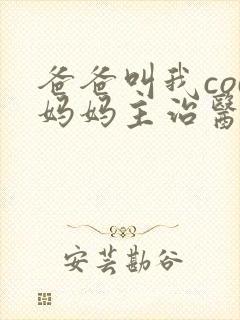 爸爸叫我co
妈妈主治醫
安芸勘谷